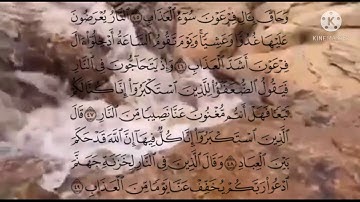 وَحَاقَ بِـَٔالِ فِرْعَوْنَ سُوٓءُ ٱلْعَذَابِ ٤٥ ٱلنَّارُ يُعْرَضُونَ
عَلَيْهَا غُدُوًّا وَعَشِيًّا وَيَوْمَ تَقُومُ ٱلسَّاعَةُ أَدْخِلُوٓا۟ ءَالَ
فِرْعَوْنَ أَشَدَّ ٱلْعَذَابِ ٤٦ وَإِذْ يَتَحَآجُّونَ فِى ٱلنَّارِ
فَيَقُولُ ٱلضُّعَفَٰٓؤُا۟ لِلَّذِينَ ٱسْتَكْبَرُوٓا۟ إِنَّا كُنَّا لَكُمْ
تَبَعًا فَهَلْ أَنتُم مُّغْنُونَ عَنَّا نَصِيبًا مِّنَ ٱلنَّارِ ٤٧ قَالَ
ٱلَّذِينَ ٱسْتَكْبَرُوٓا۟ إِنَّا كُلٌّ فِيهَآ إِنَّ ٱللَّهَ قَدْ حَكَمَ
بَيْنَ ٱلْعِبَادِ ٤٨ وَقَالَ ٱلَّذِينَ فِى ٱلنَّارِ لِخَزَنَةِ جَهَنَّمَ
ٱدْعُوا۟ رَبَّكُمْ يُخَفِّفْ عَنَّا يَوْمًا مِّنَ ٱلْعَذَابِ ٤٩